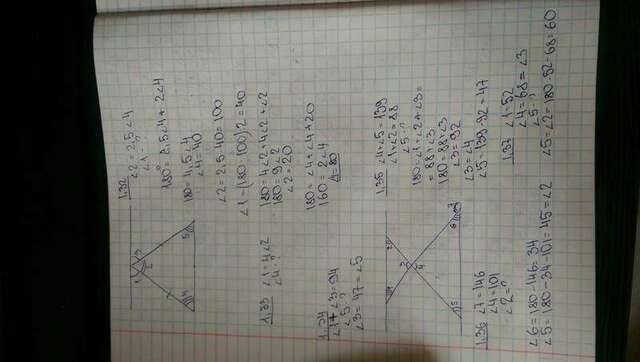 1.32
∠2 = 2,5∠4
∠1 - ?
180 = 2,5∠4 + 2∠4
180 = 4,5∠4
∠4 = 40
∠2 = 2,5·40 = 100
∠1 = (180-100):2 = 40
1.33 ∠1 = 4∠2
∠4 - ?
180 = 4∠2 + 4∠2 + ∠2
180 = 9∠2
∠2 = 20
180 = ∠4 + ∠4 + 20
160 = 2∠4
∠4 = 80
1.34
∠1 + ∠3 = 94
∠5 - ?
∠3 = 47 = ∠5
1.35 ∠4 + ∠5 = 139
∠1 + ∠2 = 88
∠5 - ?
180 = ∠1 + ∠2 + ∠3 =
= 88 + ∠3
180 = 88 + ∠3
∠3 = 92
∠3 = ∠4
∠5 = 139 - 92 = 47
1.36 ∠7 = 146
∠4 = 101
∠2 = ?
∠6 = 180 - 146 = 34
∠5 = 180 - 34 - 101 = 45 = ∠2
1.37 ∠1 = 52
∠4 = 68 = ∠3
∠5 - ?
∠5 = ∠2 = 180 - 52 - 68 = 60